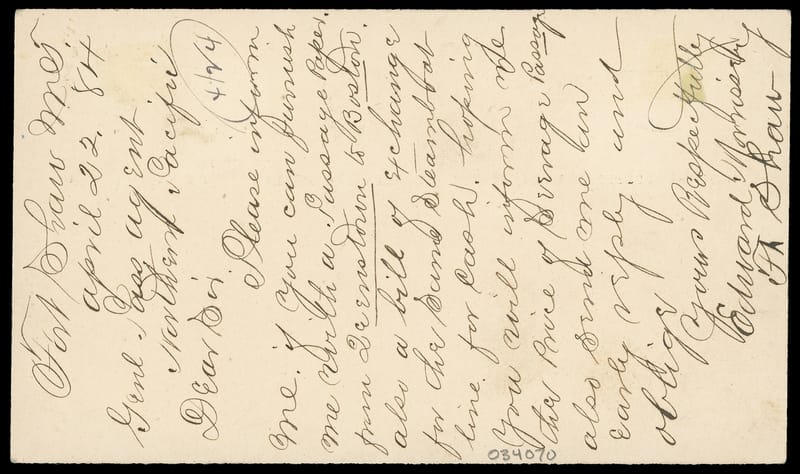 Fort Shaw M.T.
april 22. 84
Genl Pass agent
Northern Pacific
4/24
Dear Sir
Please inform
me. if you can furnish
me with a Passage Paper.
from Queenstown to Boston.
also a bill of exchange
for the same Steamboat
line. for Cash. hoping
you will inform me
the Price of Steerage Passage
also send me an
Early reply. and
oblige
yours Respectfully
Edward
Ft Shaw
034070